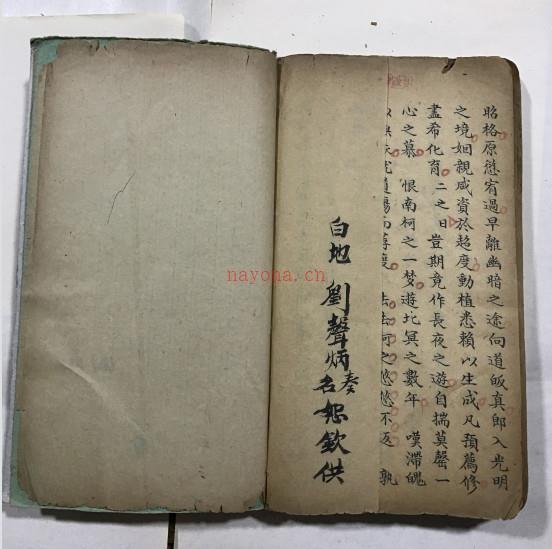 昭格原愆宥過早離幽暗之途向道皈真即入光明
之境姻親咸資於超度動植悉賴以生成凡預薦修
盡希化育 二之日豈期竟作長夜之遊自揣莫罄一
心之慕 恨南柯之一夢遊北冥之數年 嘆滯魄
之悠悠不返 孰
白地 劉聲炳奏名恕欽供
nayona.cn